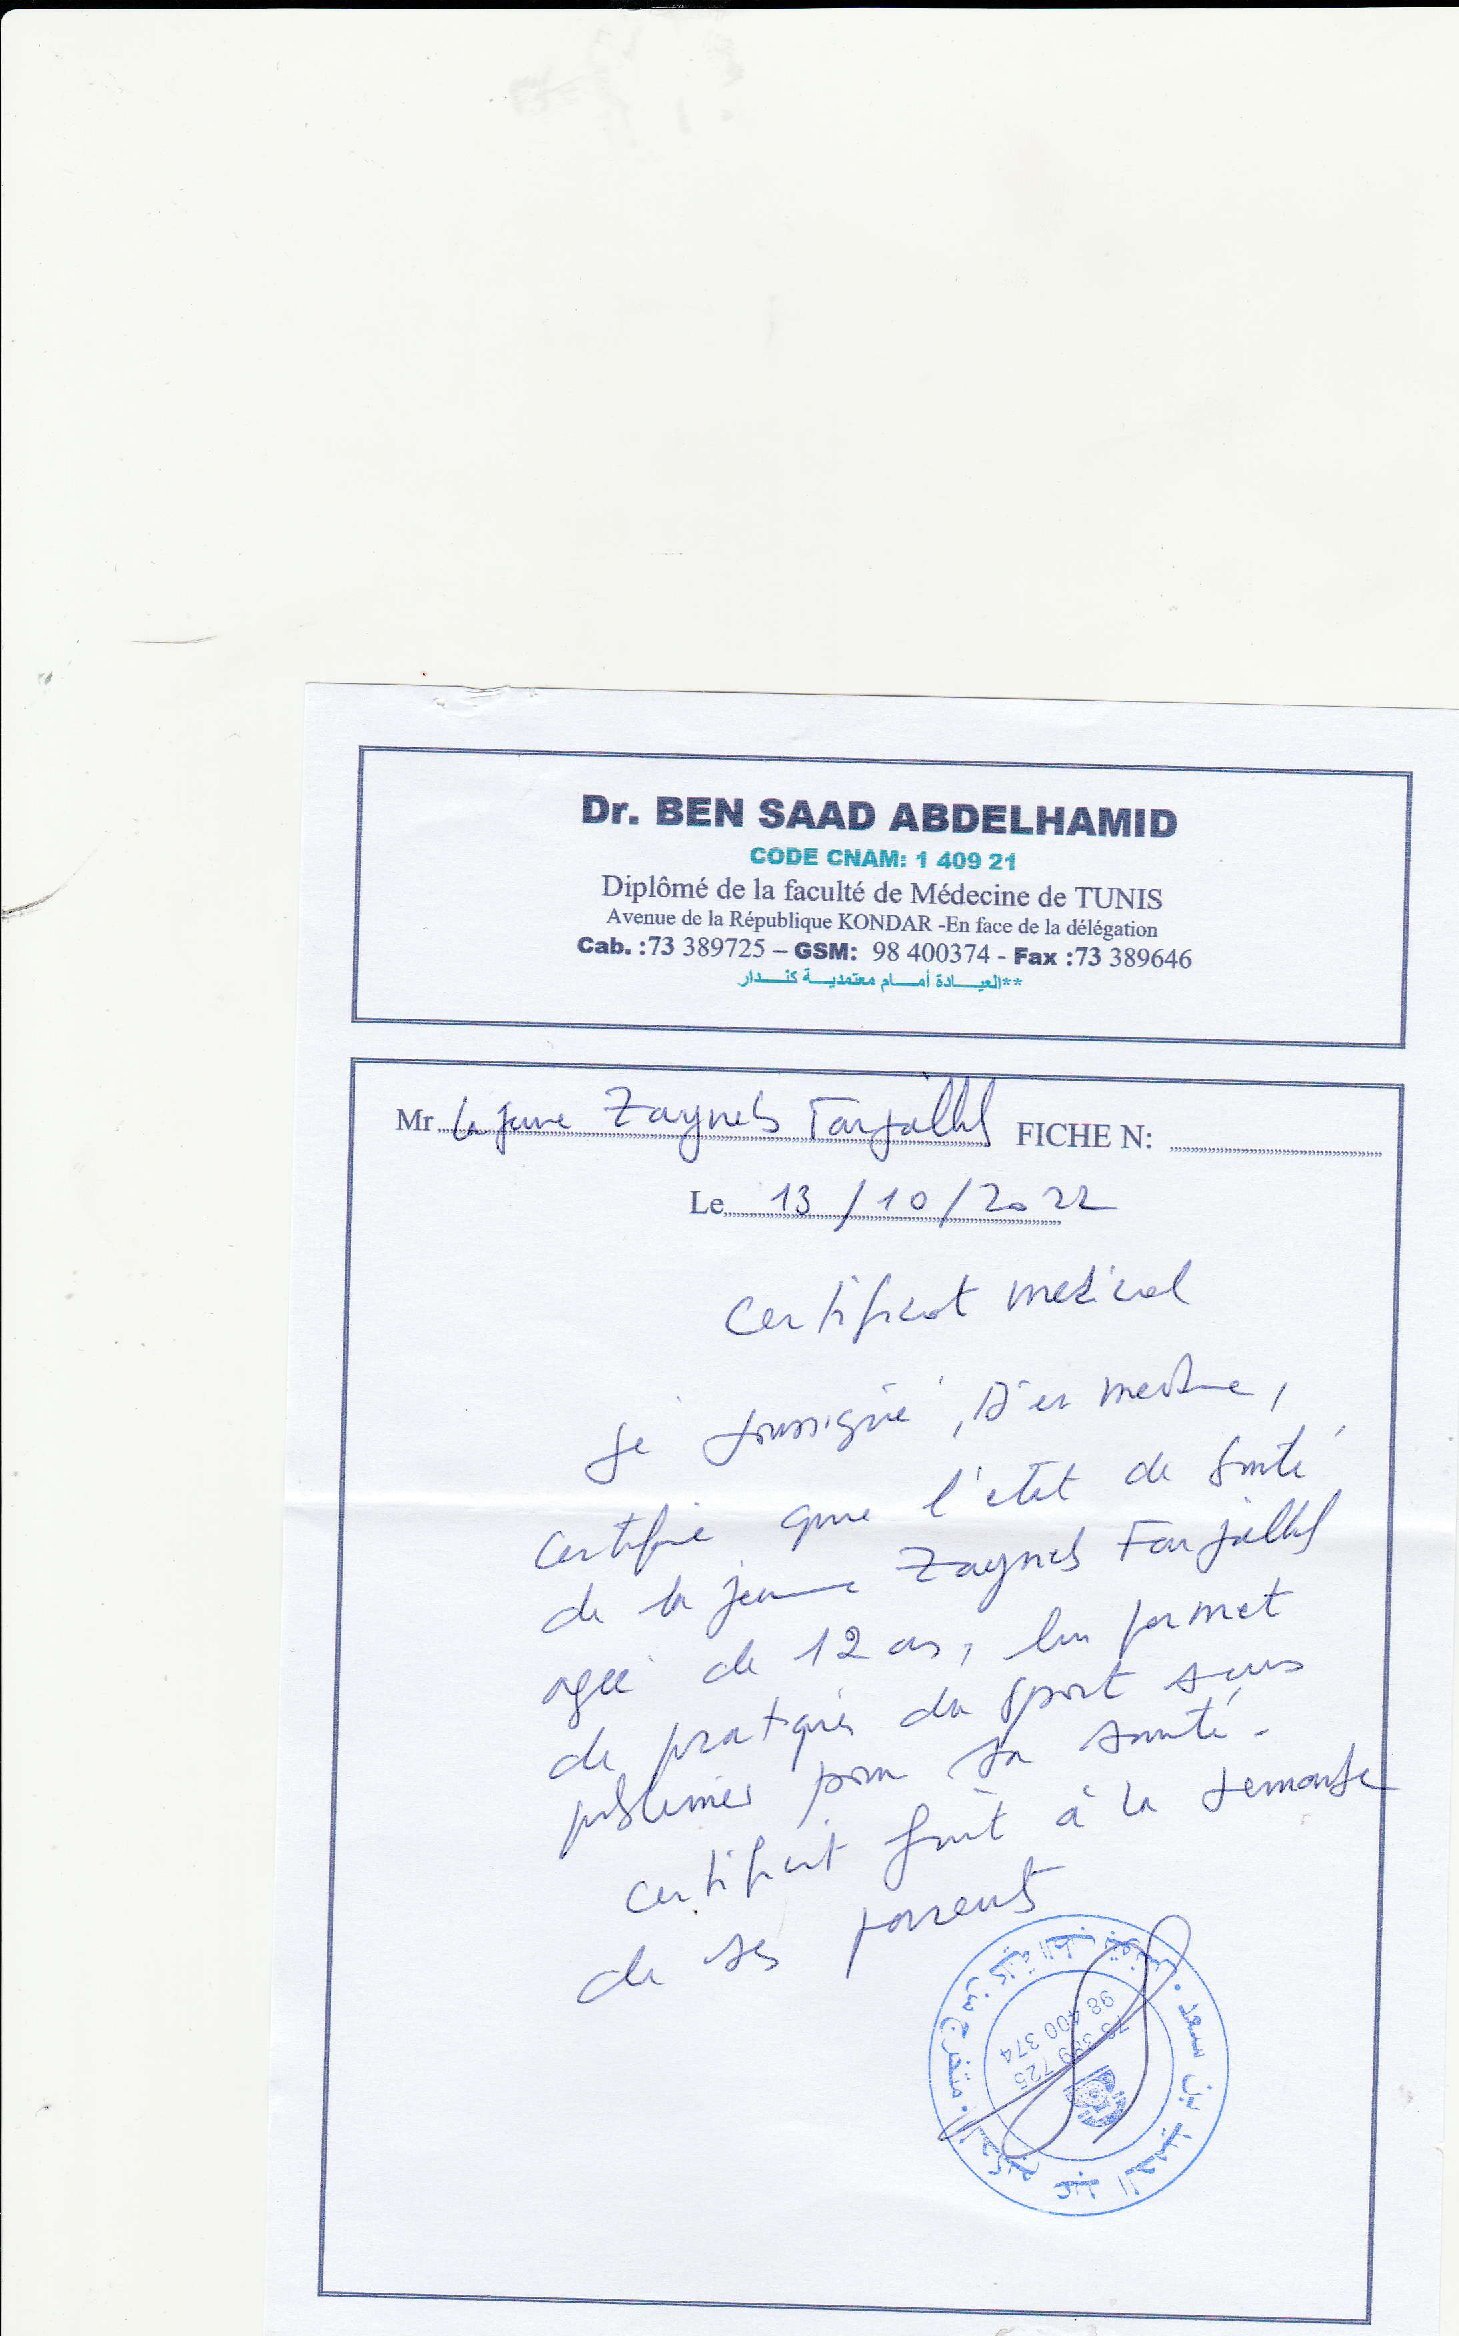 Dr. BEN SAAD ABDELHAMID
CODE CNAM: 1 409 21
Diplômé de la faculté de Médecine de TUNIS
Avenue de la République KONDAR -En face de la délégation
Cab. :73 389725 – GSM: 98 400374 - Fax :73 389646
**العيـــادة أمـــام معتمديـــة كنـــدار
Mr la jeune Zayneb Farjallah FICHE N:
Le 13/10/2022
Certificat medical
Je soussigné, Dr en medecine,
certifie que l'etat de santé
de la jeune Zayneb Farjallah
agée de 12 ans, lui permet
de pratiquer du sport sans
problemes pour sa santé.
certificat fait à la demande
de ses parents
الحكيم عبد الحميد بن سعد . متخرج من كلية الطب بتونس .
73 389 725
98 400 374